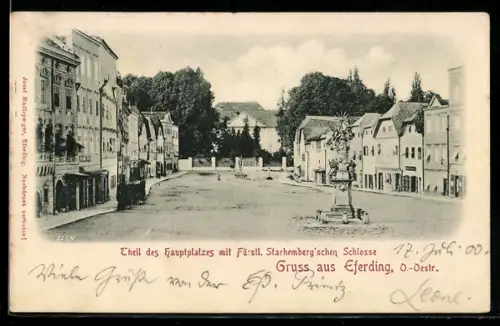 Josef Madlsperger, Eferding. Nachdruck verboten!
Theil des Hauptplatzes mit Fürstl. Starhemberg'schen Schlosse
Gruss aus Eferding, O.-Oestr.
17. Juli 00.
Viele Grüße von der
Leone.